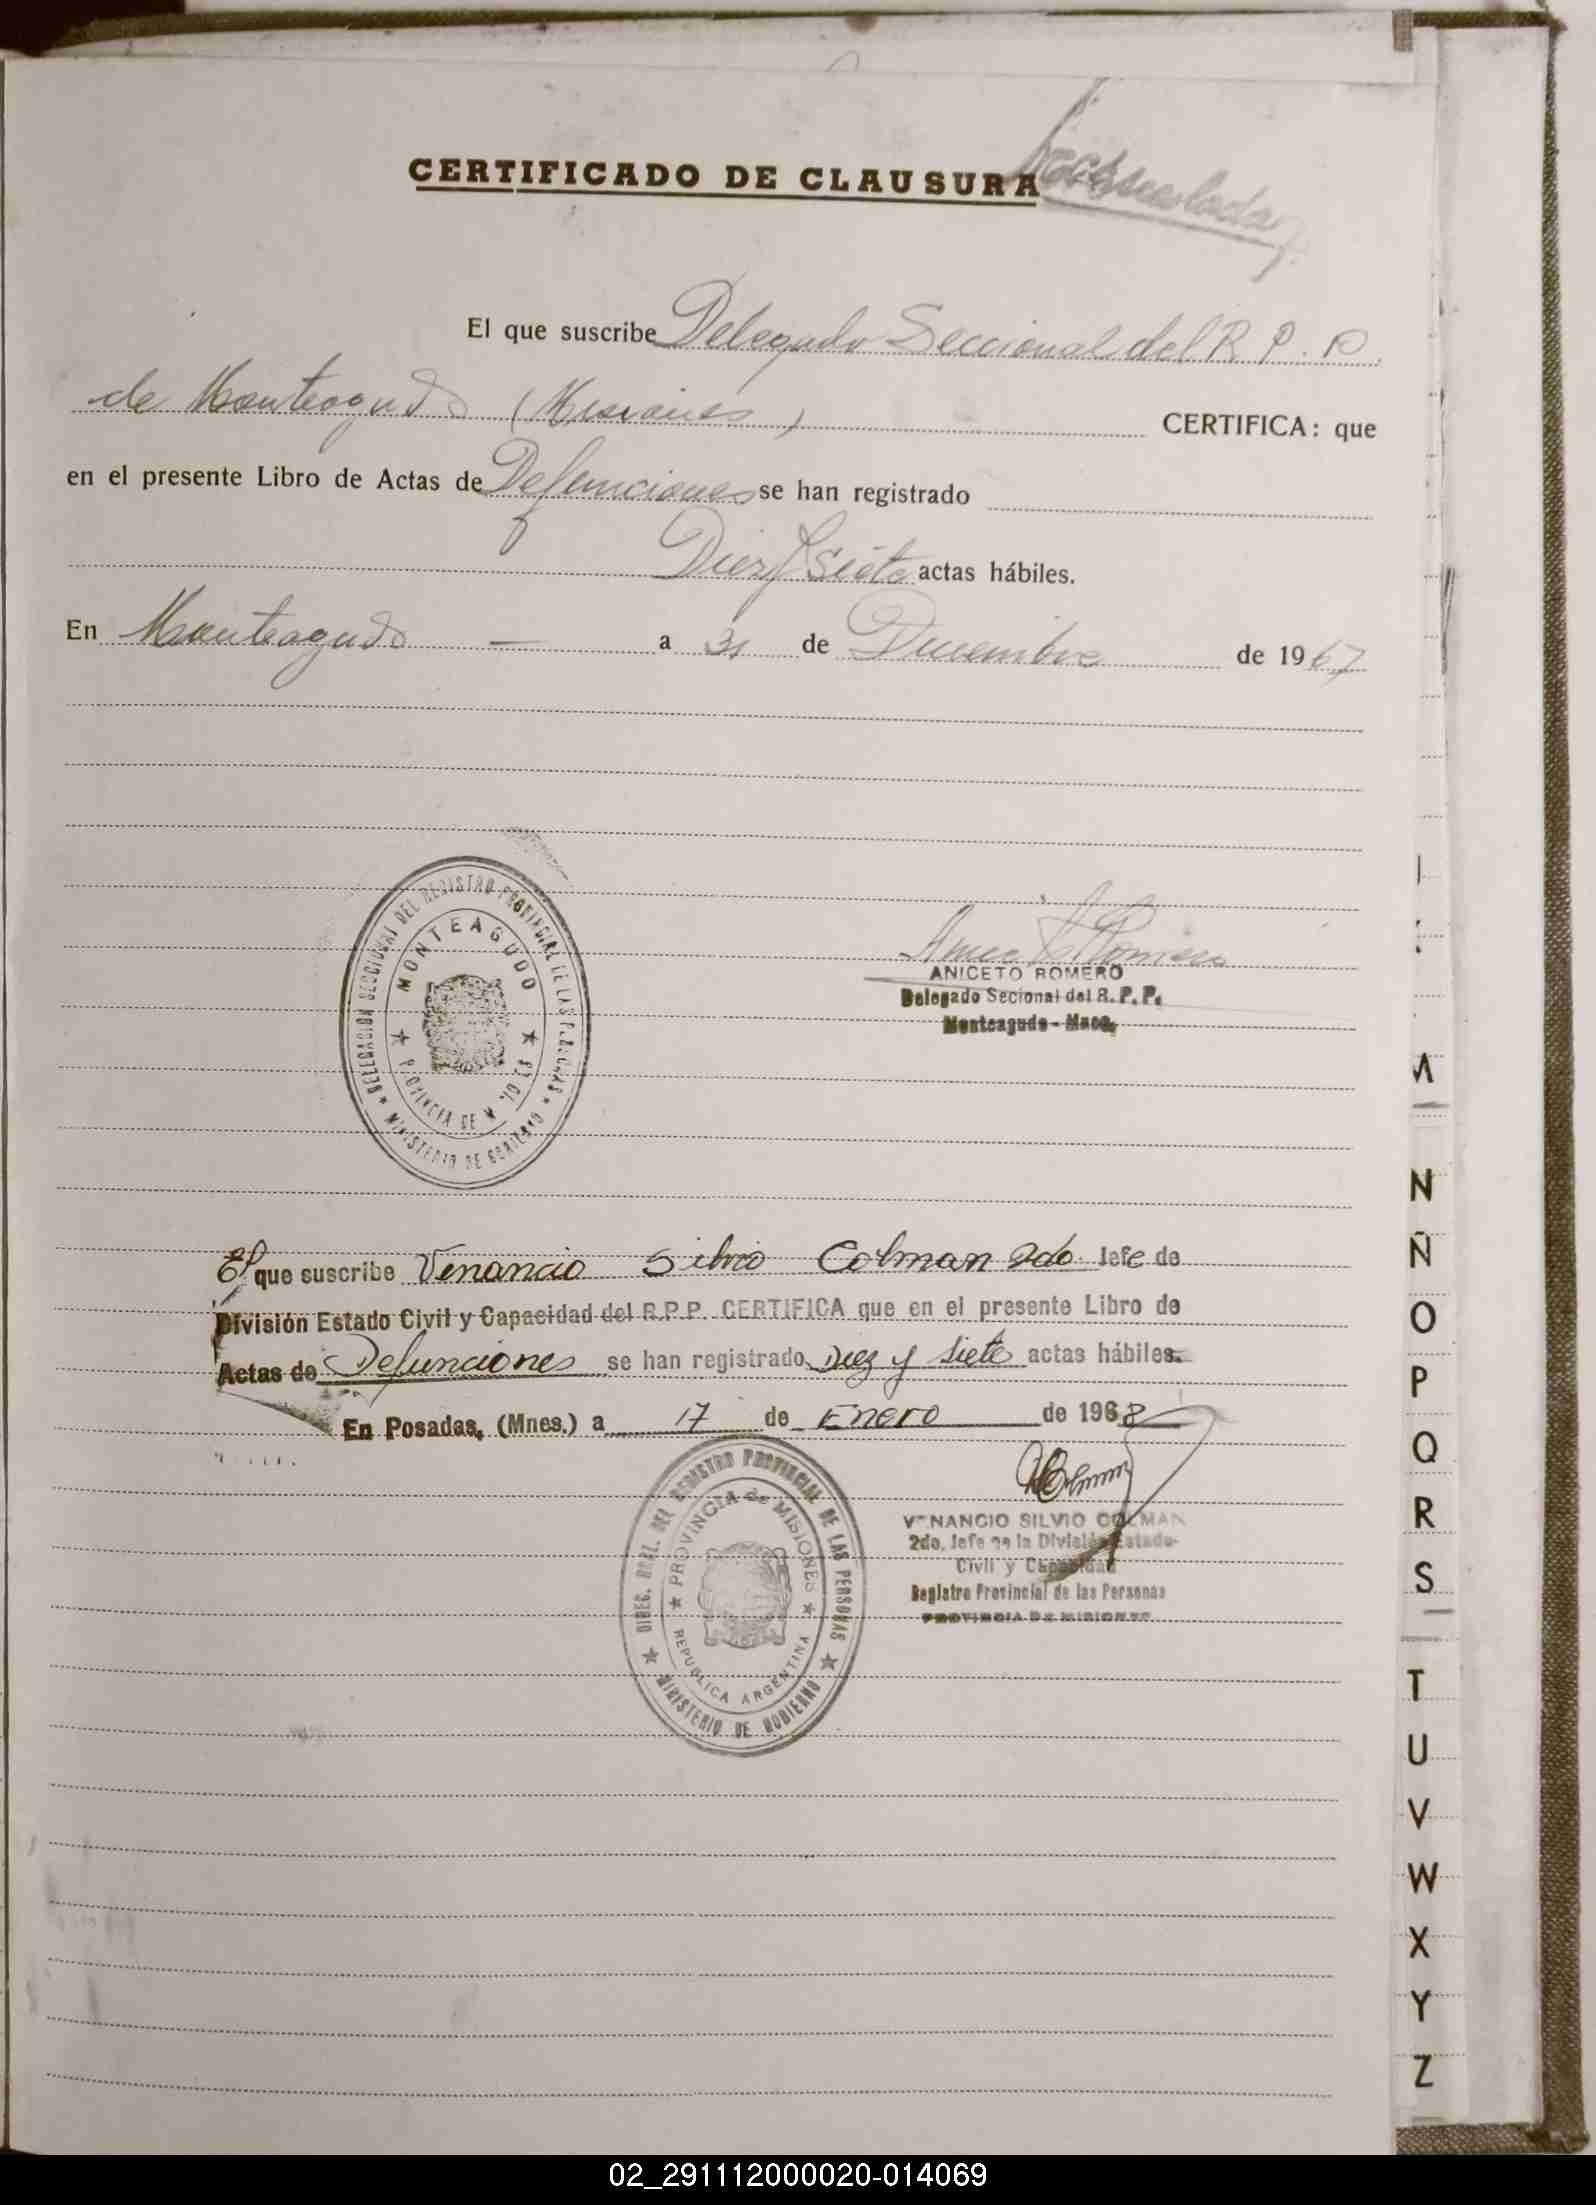 CERTIFICADO DE CLAUSURA
El que suscribe Delegado Seccional del R. P. P.
de Monteagudo (Misiones) CERTIFICA: que
en el presente Libro de Actas de Defunciones se han registrado
Diez y Siete actas hábiles.
En Monteagudo — a 31 de Diciembre de 1967
DELEGACION SECCIONAL DEL REGISTRO PROVINCIAL DE LAS PERSONAS
MINISTERIO DE GOBIERNO
MONTEAGUDO
PROVINCIA DE
ANICETO ROMERO
Delegado Secional del R. P. P.
Monteagudo - Mnes.
El que suscribe Venancio Silvio Colman 2do Jefe de
División Estado Civil y Capacidad del R.P.P. CERTIFICA que en el presente Libro de
Actas de Defunciones se han registrado Diez y Siete actas hábiles.
En Posadas, (Mnes.) a 17 de Enero de 1968
DIREC. GRAL. DEL REGISTRO PROVINCIAL DE LAS PERSONAS
MINISTERIO DE GOBIERNO
PROVINCIA de MISIONES
REPUBLICA ARGENTINA
VENANCIO SILVIO COLMAN
2do. Jefe de la División Estado
Civil y Capacidad
Registro Provincial de las Personas
PROVINCIA DE MISIONES
N
Ñ
O
P
Q
R
S
T
U
V
W
X
Y
Z
02_291112000020-014069